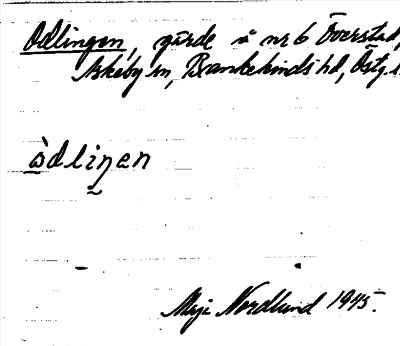 Odlingen, gärde å nr 6 Överstad,
Askeby sn, Bankekinds hd, Östg.l.
ò̱dliŋ̰en
Maji Nordlund 1945.